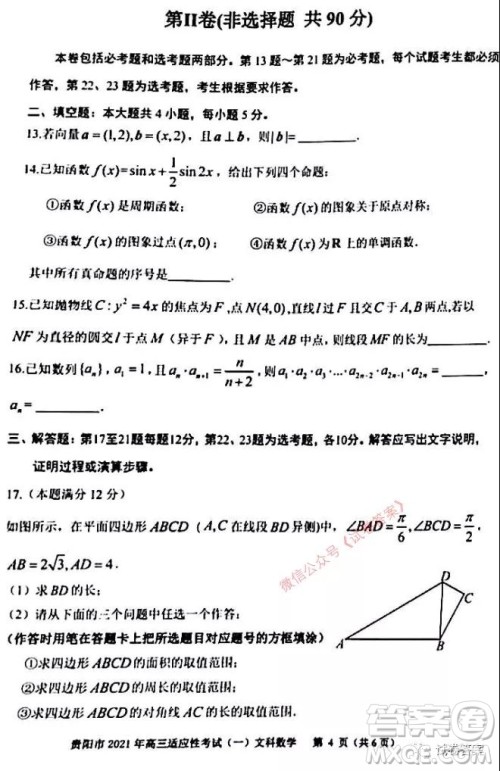 第II卷(非选择题 共90分)
本卷包括必考题和选考题两部分。第13题～第21题为必考题，每个试题考生都必须
作答，第22、23题为选考题，考生根据要求作答。
二、填空题：本大题共4小题，每小题5分。
13.若向量a=(1,2),b=(x,2)，且a⊥b，则|b|=________.
14.已知函数f(x)=sinx+1/2 sin2x，给出下列四个命题:
①函数f(x)是周期函数; ②函数f(x)的图象关于原点对称;
③函数f(x)的图象过点(π,0); ④函数f(x)为R上的单调函数.
其中所有真命题的序号是________.
15.已知抛物线C:y²=4x的焦点为F,点N(4,0),直线l过F且交C于A,B两点,若以
NF为直径的圆交l于点M（异于F），且M是AB中点，则线段MF的长为________.
16.已知数列{aₙ}，a₁=1，且aₙ·aₙ₊₁=n/(n+2),则a₁·a₂·a₃·…·a₂ₙ₋₁·a₂ₙ=________，
aₙ=________.
三、解答题：第17至21题每题12分，第22、23题为选考题，各10分。解答应写出文字说明，
证明过程或演算步骤。
17.（本题满分12分）
如图所示，在平面四边形ABCD（A,C在线段BD异侧)中，∠BAD=π/6,∠BCD=π/2,
AB=2√3,AD=4.
（1）求BD的长;
（2）请从下面的三个问题中任选一个作答:
(作答时用笔在答题卡上把所选题目对应题号的方框填涂)
①求四边形ABCD的面积的取值范围;
②求四边形ABCD的周长的取值范围;
D
C
A
B
微信公众号《试卷答案》
贵阳市2021年高三适应性考试（一）文科数学 第4页（共6页）